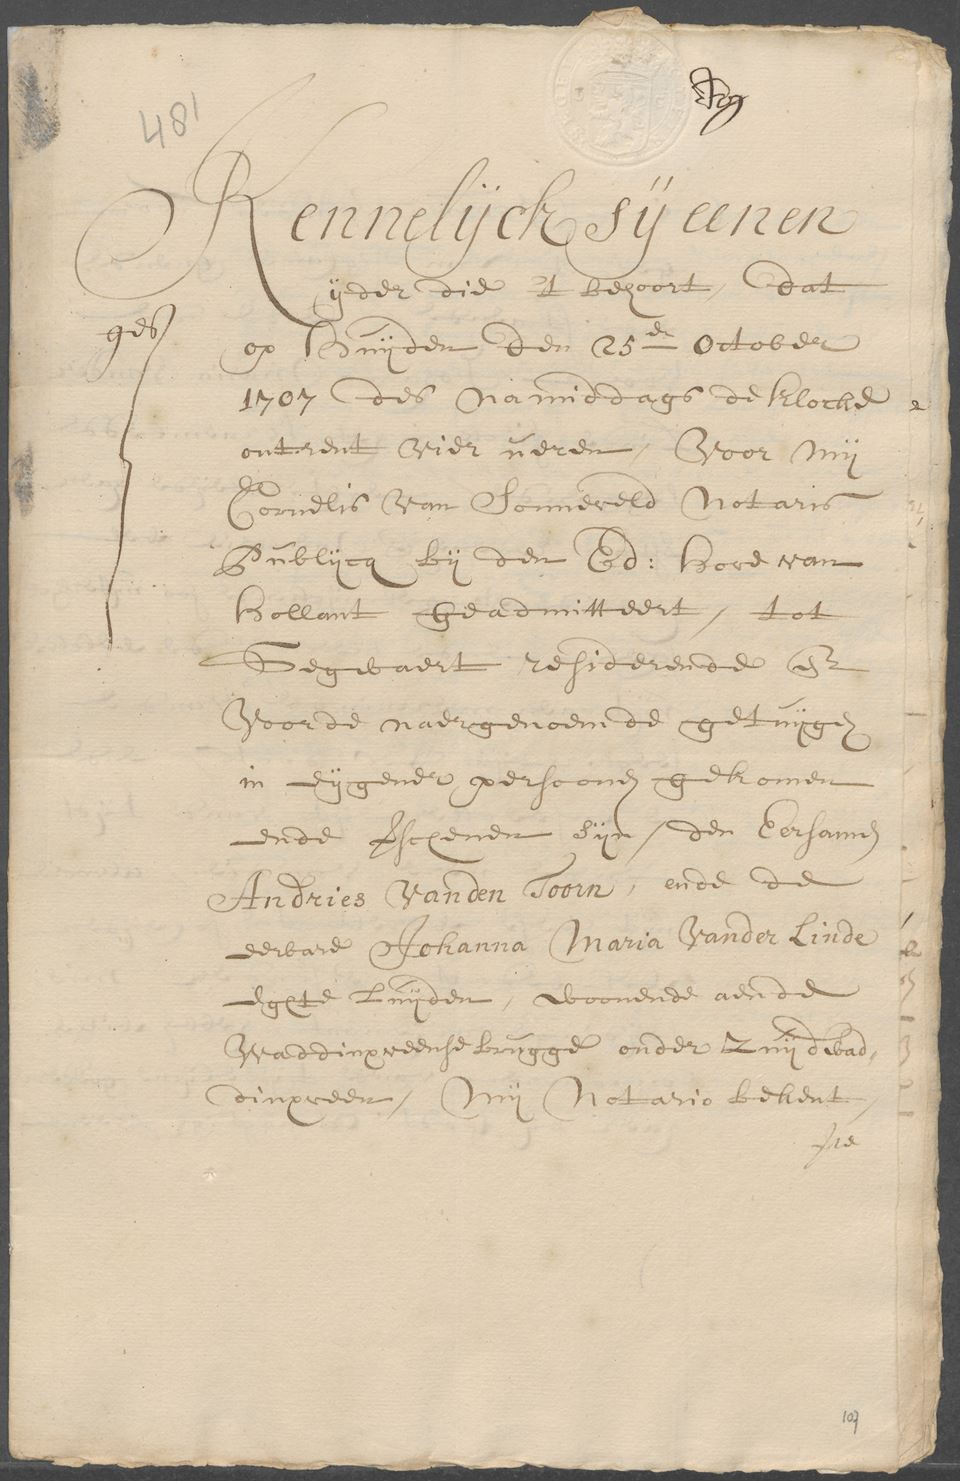 481
Kennelijck sÿ eenen
ijder die 't behoort, dat
ges
op huijden den 25er October
1707 des namiddags de klocke
ontrent vier uren, voor mij
Cornelis van Sonneveld Notaris
Publijcq bij den Ed: hove van
Hollant geadmitteert, tot
Segwaert residerende en
voor de naergenoemde getuijgen
in eijgener persoonen gekomen
ende Erschenen sijn, den Eersamen
Andries vanden Toorn, ende de
eerbare Johanna Maria vander Linde
egte Luijden, woonende aende
Waddinxveense brugge onder Zuijdwad,
dinxveen, mij Notario bekent,
sie
107